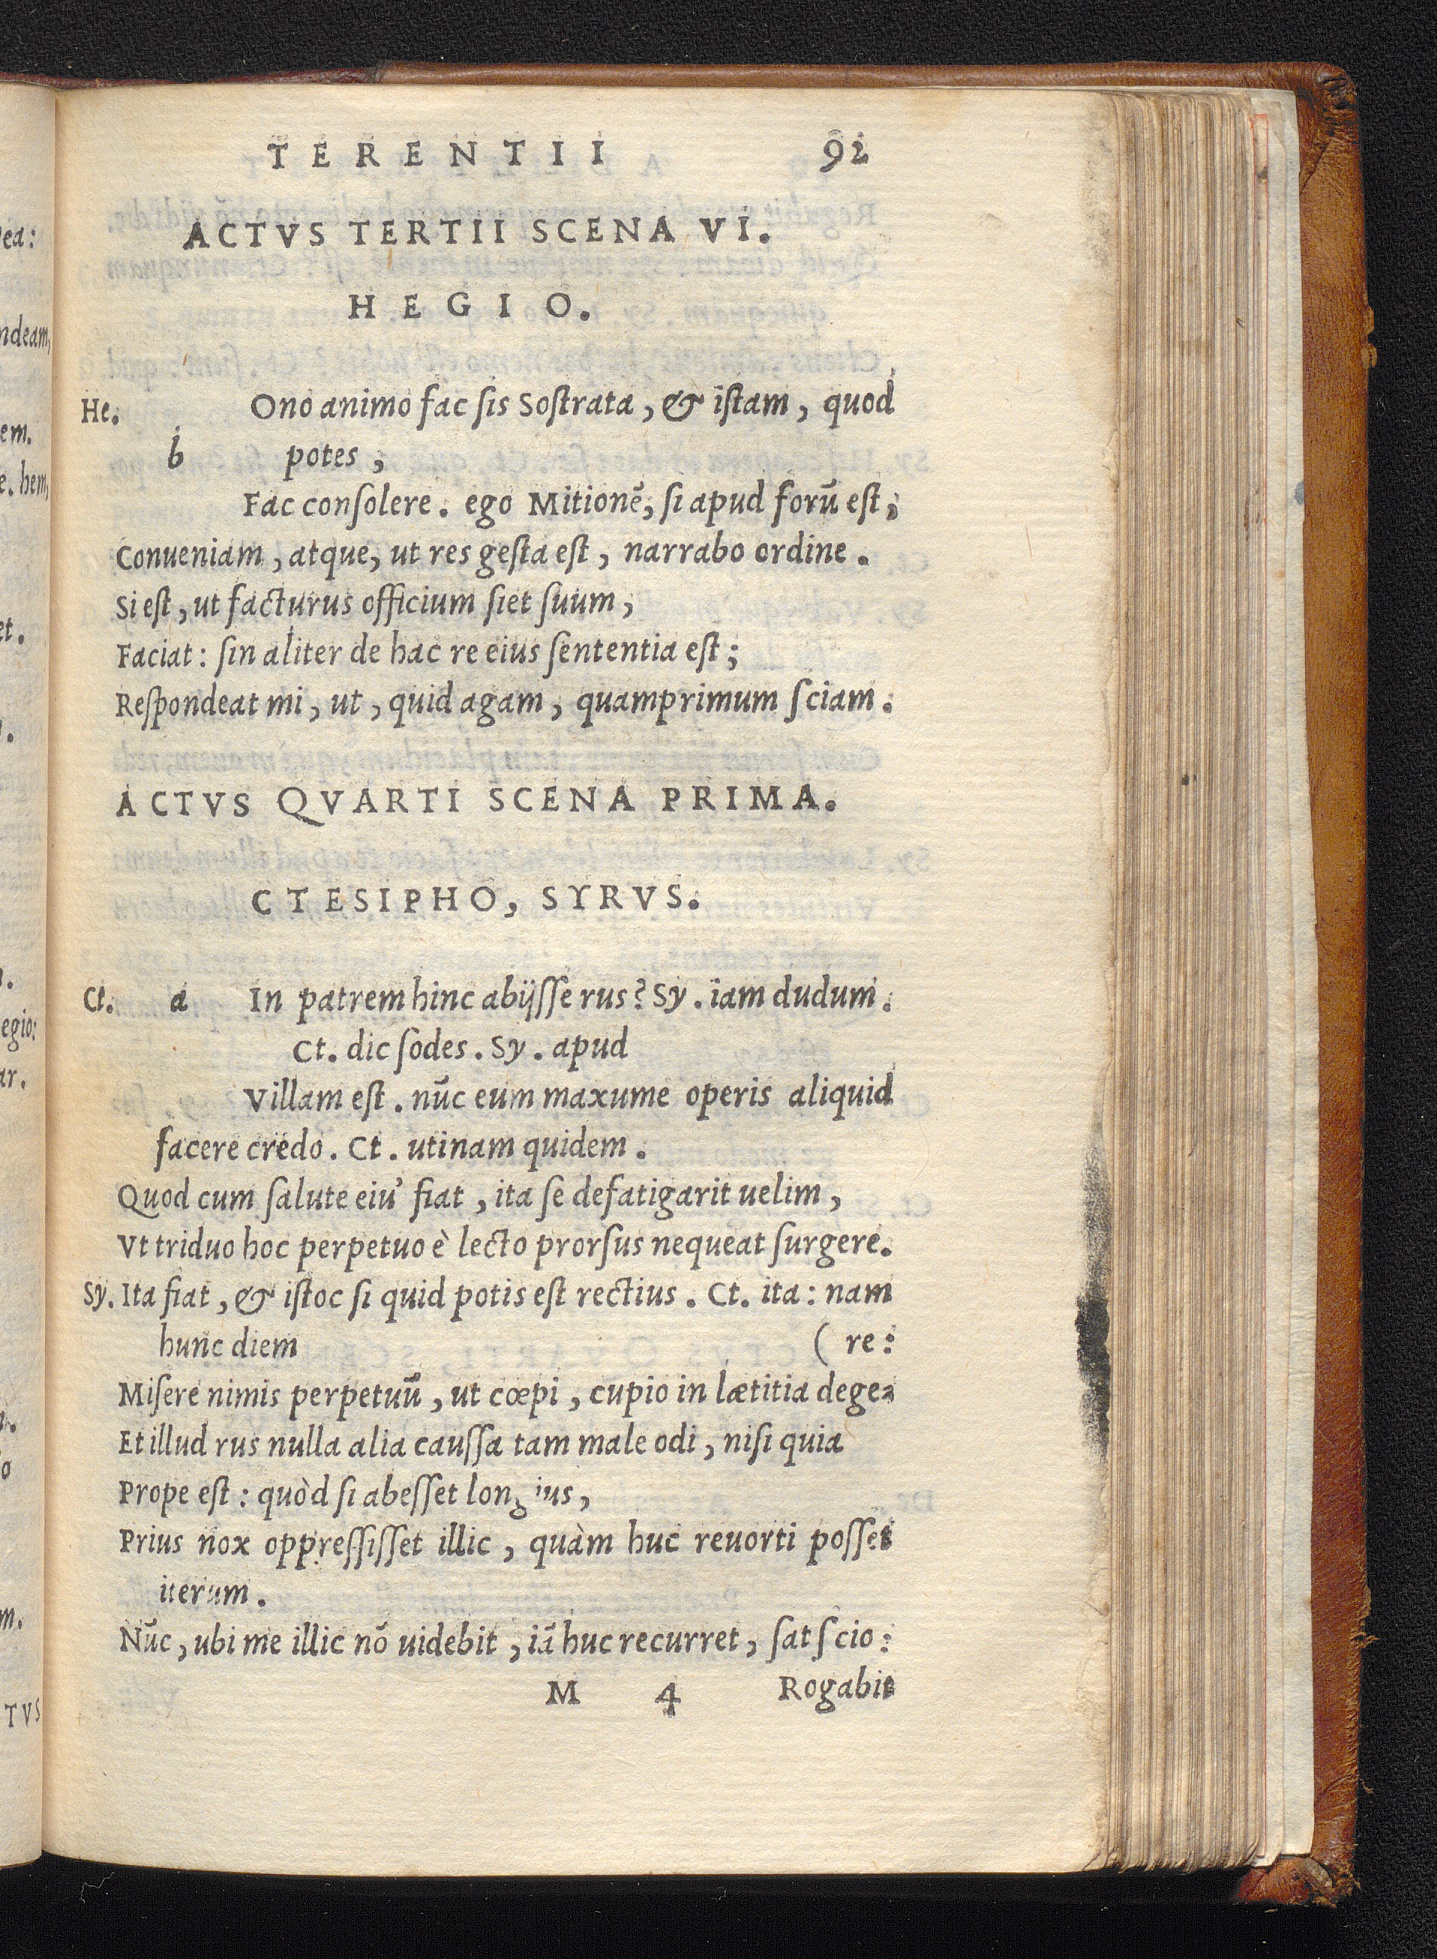 TERENTII 92
ACTVS TERTII SCENA VI.
HEGIO.
He. Ono animo fac ſis Soſtrata, & iſtam, quod
b potes,
Fac conſolere. ego Mitionē, ſi apud forū eſt,
Conueniam, atque, ut res geſta eſt, narrabo ordine.
Si eſt, ut facturus officium ſiet ſuum,
Faciat: ſin aliter de hac re eius ſententia eſt;
Reſpondeat mi, ut, quid agam, quamprimum ſciam.
ACTVS QVARTI SCENA PRIMA.
CTESIPHO, SYRVS.
Ct. a In patrem hinc abijſſe rus? Sy. iam dudum.
Ct. dic ſodes. Sy. apud
Villam eſt. nūc eum maxume operis aliquid
facere credo. Ct. utinam quidem.
Quod cum ſalute eiu' fiat, ita ſe defatigarit uelim,
Vt triduo hoc perpetuo è lecto prorſus nequeat ſurgere.
Sy. Ita fiat, & iſtoc ſi quid potis eſt rectius. Ct. ita: nam
hunc diem (re:
Miſere nimis perpetuū, ut cœpi, cupio in lætitia dege-
Et illud rus nulla alia cauſſa tam male odi, niſi quia
Prope eſt: quòd ſi abeſſet longius,
Prius nox oppreſſiſſet illic, quàm huc reuorti poſſet
iterum.
Nūc, ubi me illic nō uidebit, iā huc recurret, ſat ſcio:
M 4 Rogabit
ea:
ndeam,
em.
e. hem,
et.
egio:
ar.
m.
TVS